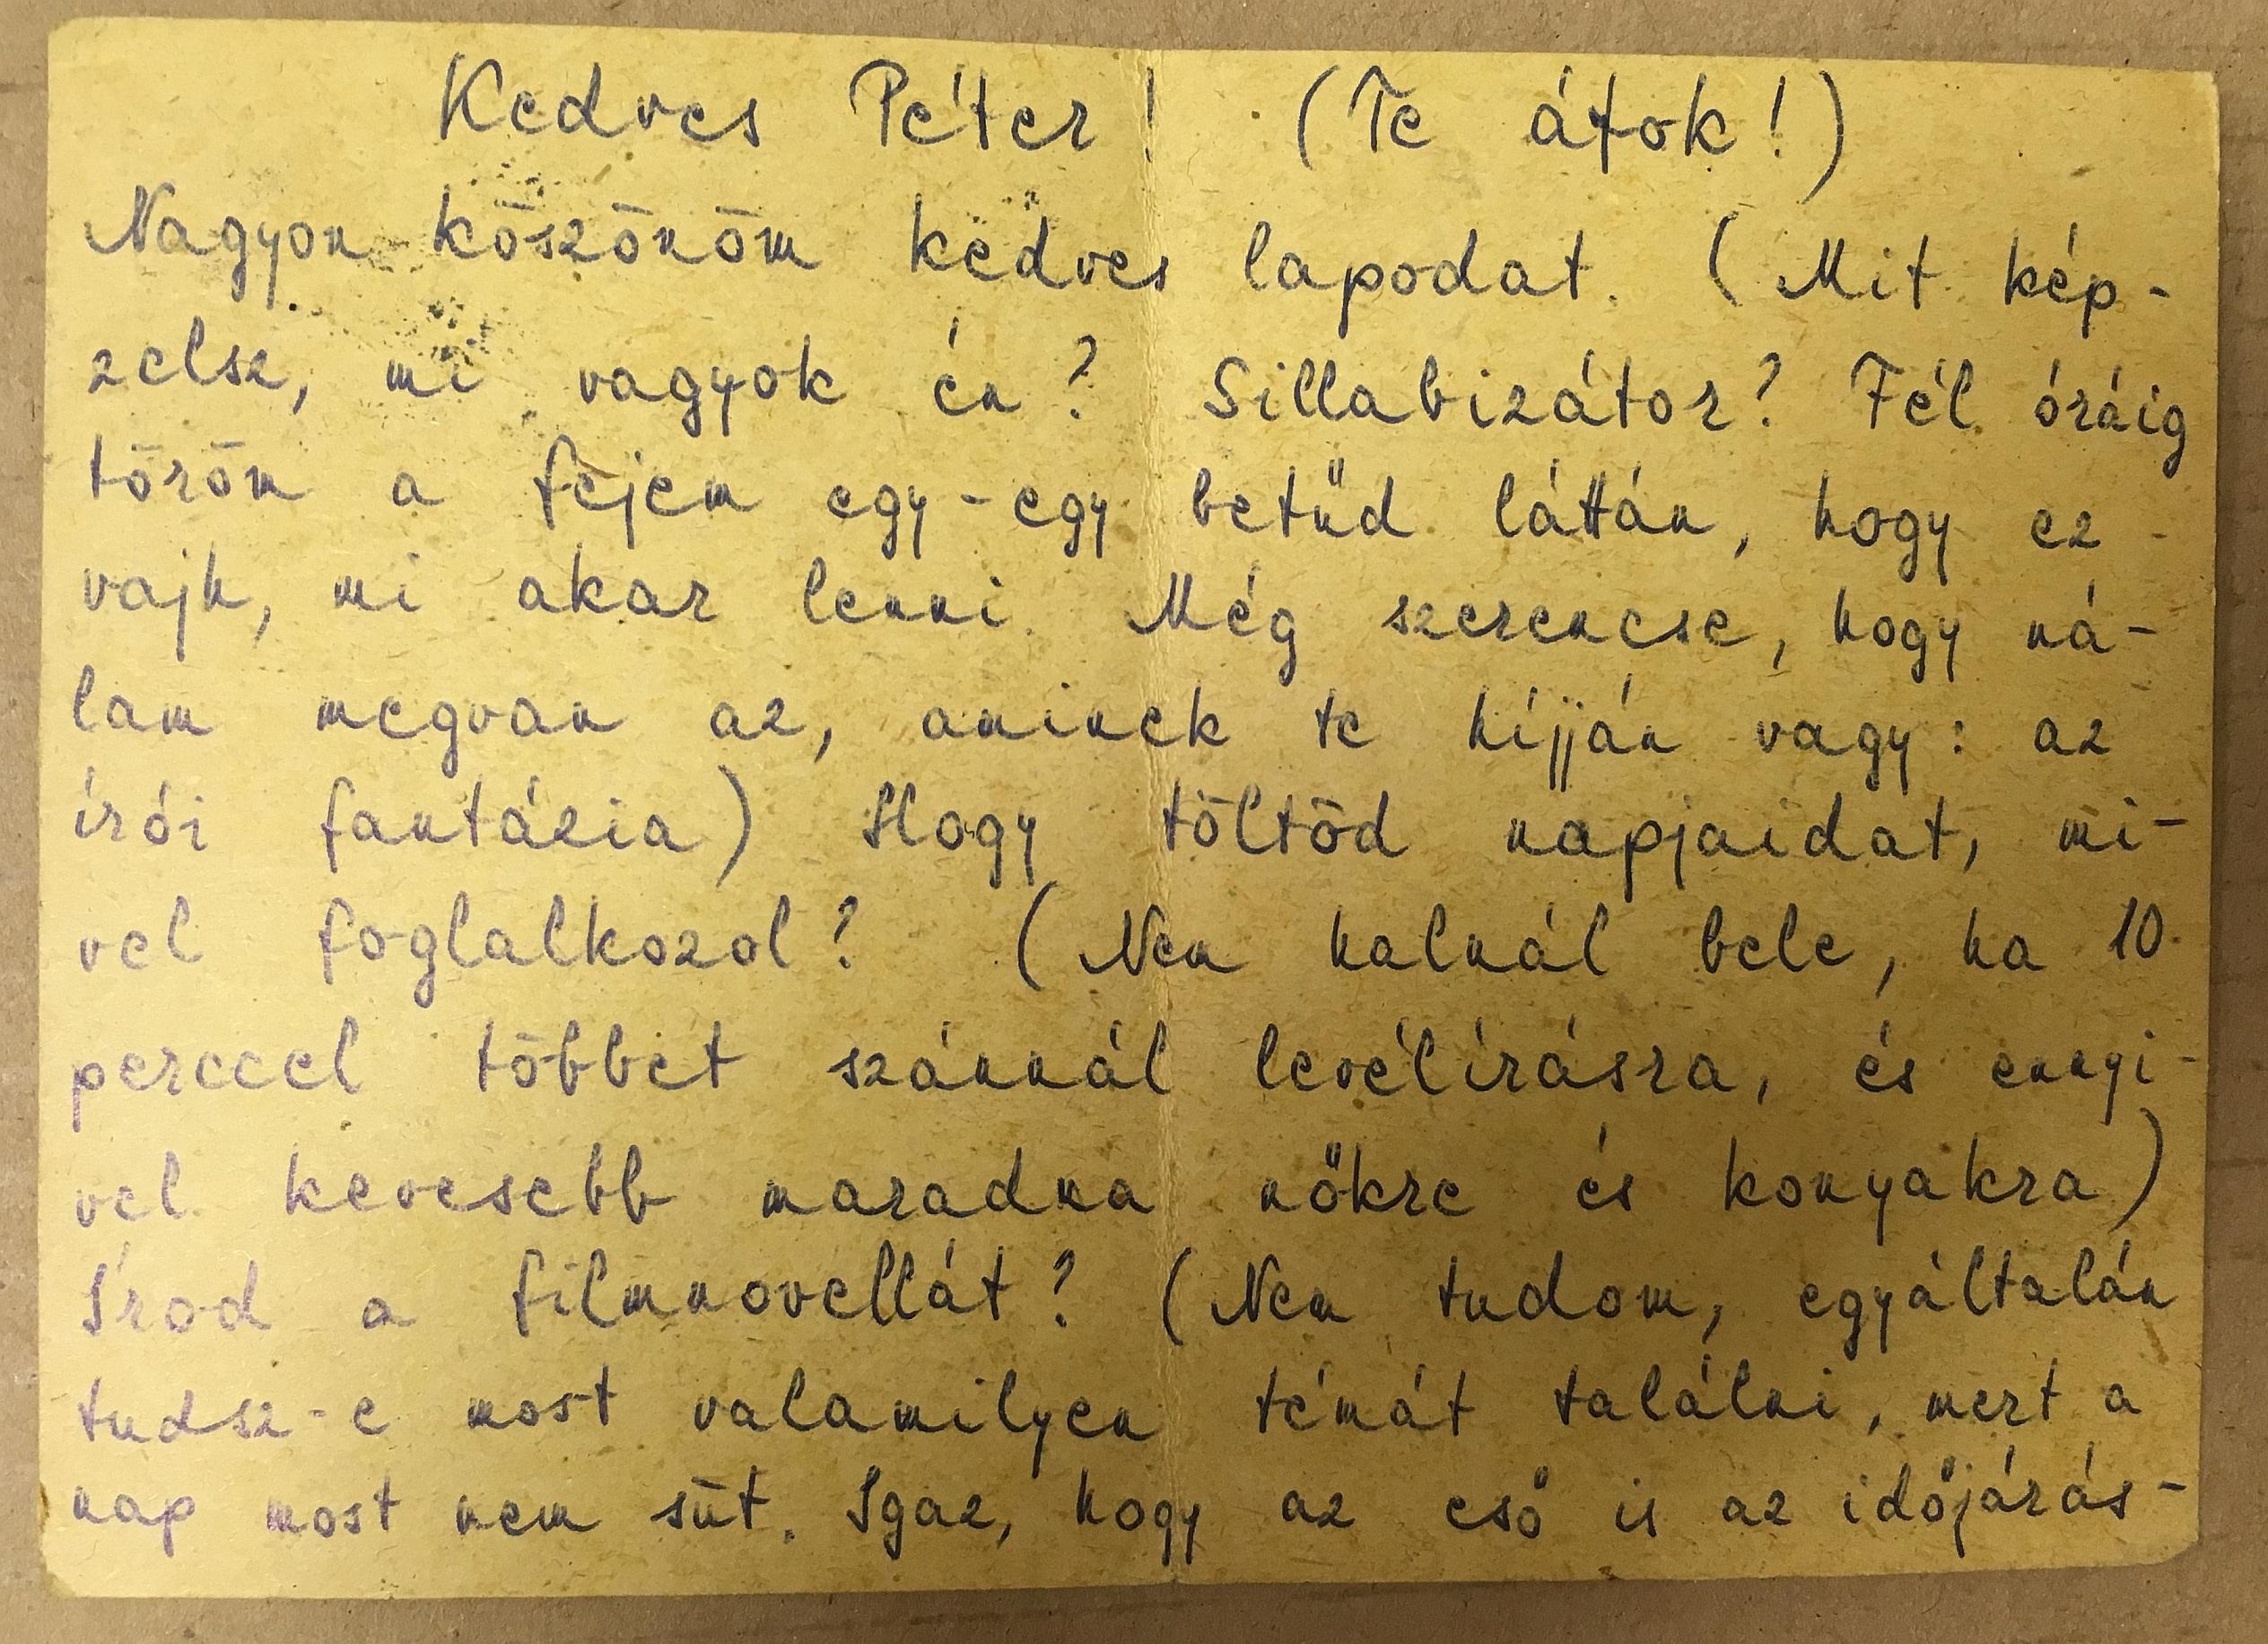 Kedves Péter! (Te átok!)
Nagyon köszönöm kedves lapodat. (Mit kép-
zelsz, mi vagyok én? Sillabizátor? Fél óráig
töröm a fejem egy-egy betűd láttán, hogy ez
vajh, mi akar lenni. Még szerencse, hogy ná-
lam megvan az, aminek te híjján vagy: az
írói fantázia) Hogy töltöd napjaidat, mi-
vel foglalkozol? (Nem halnál bele, ha 10
perccel többet szánnál levélírásra, és ennyi-
vel kevesebb maradna nőkre és konyakra)
Írod a filmnovellát? (Nem tudom, egyáltalán
tudsz-e most valamilyen témát találni, mert a
nap most nem süt. Igaz, hogy az eső is az időjárás-